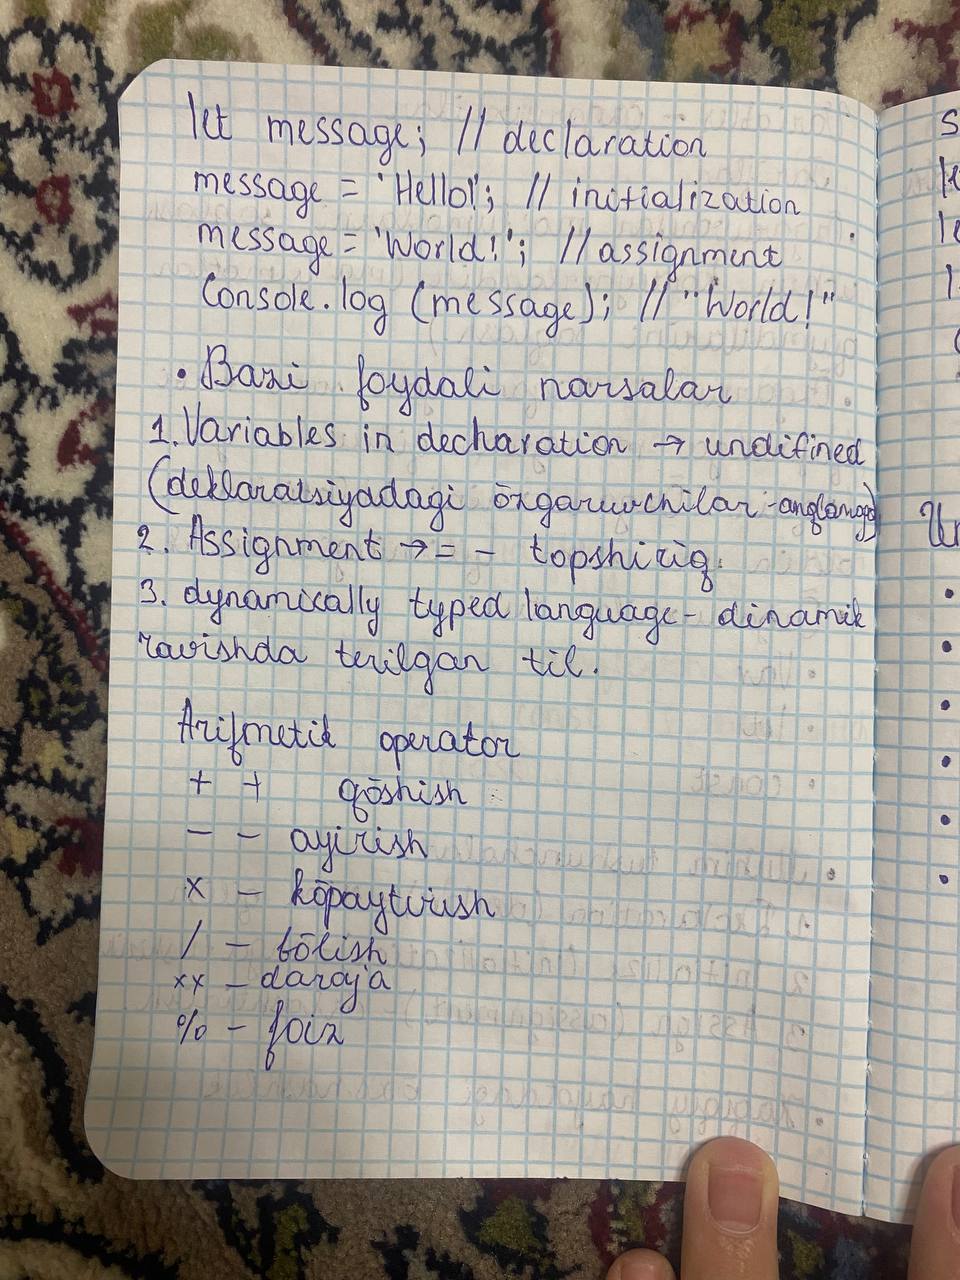 let message; // declaration
message = 'Hello!'; // initialization
message = 'World!'; // assignment
Console.log (message); // "World!"
• Bazi foydali narsalar
1. Variables in decharation → undifined
(deklaratsiyadagi ōzgaruvchilar - anqlangr)
2. Assignment → = - topshiriq.
3. dynamically typed language - dinamik
ravishda terilgan til.
Arifmetik operator
+ + qōshish
- - ayirish
x - kōpaytirish
/ - bōlish
xx - daroja
% - foiz